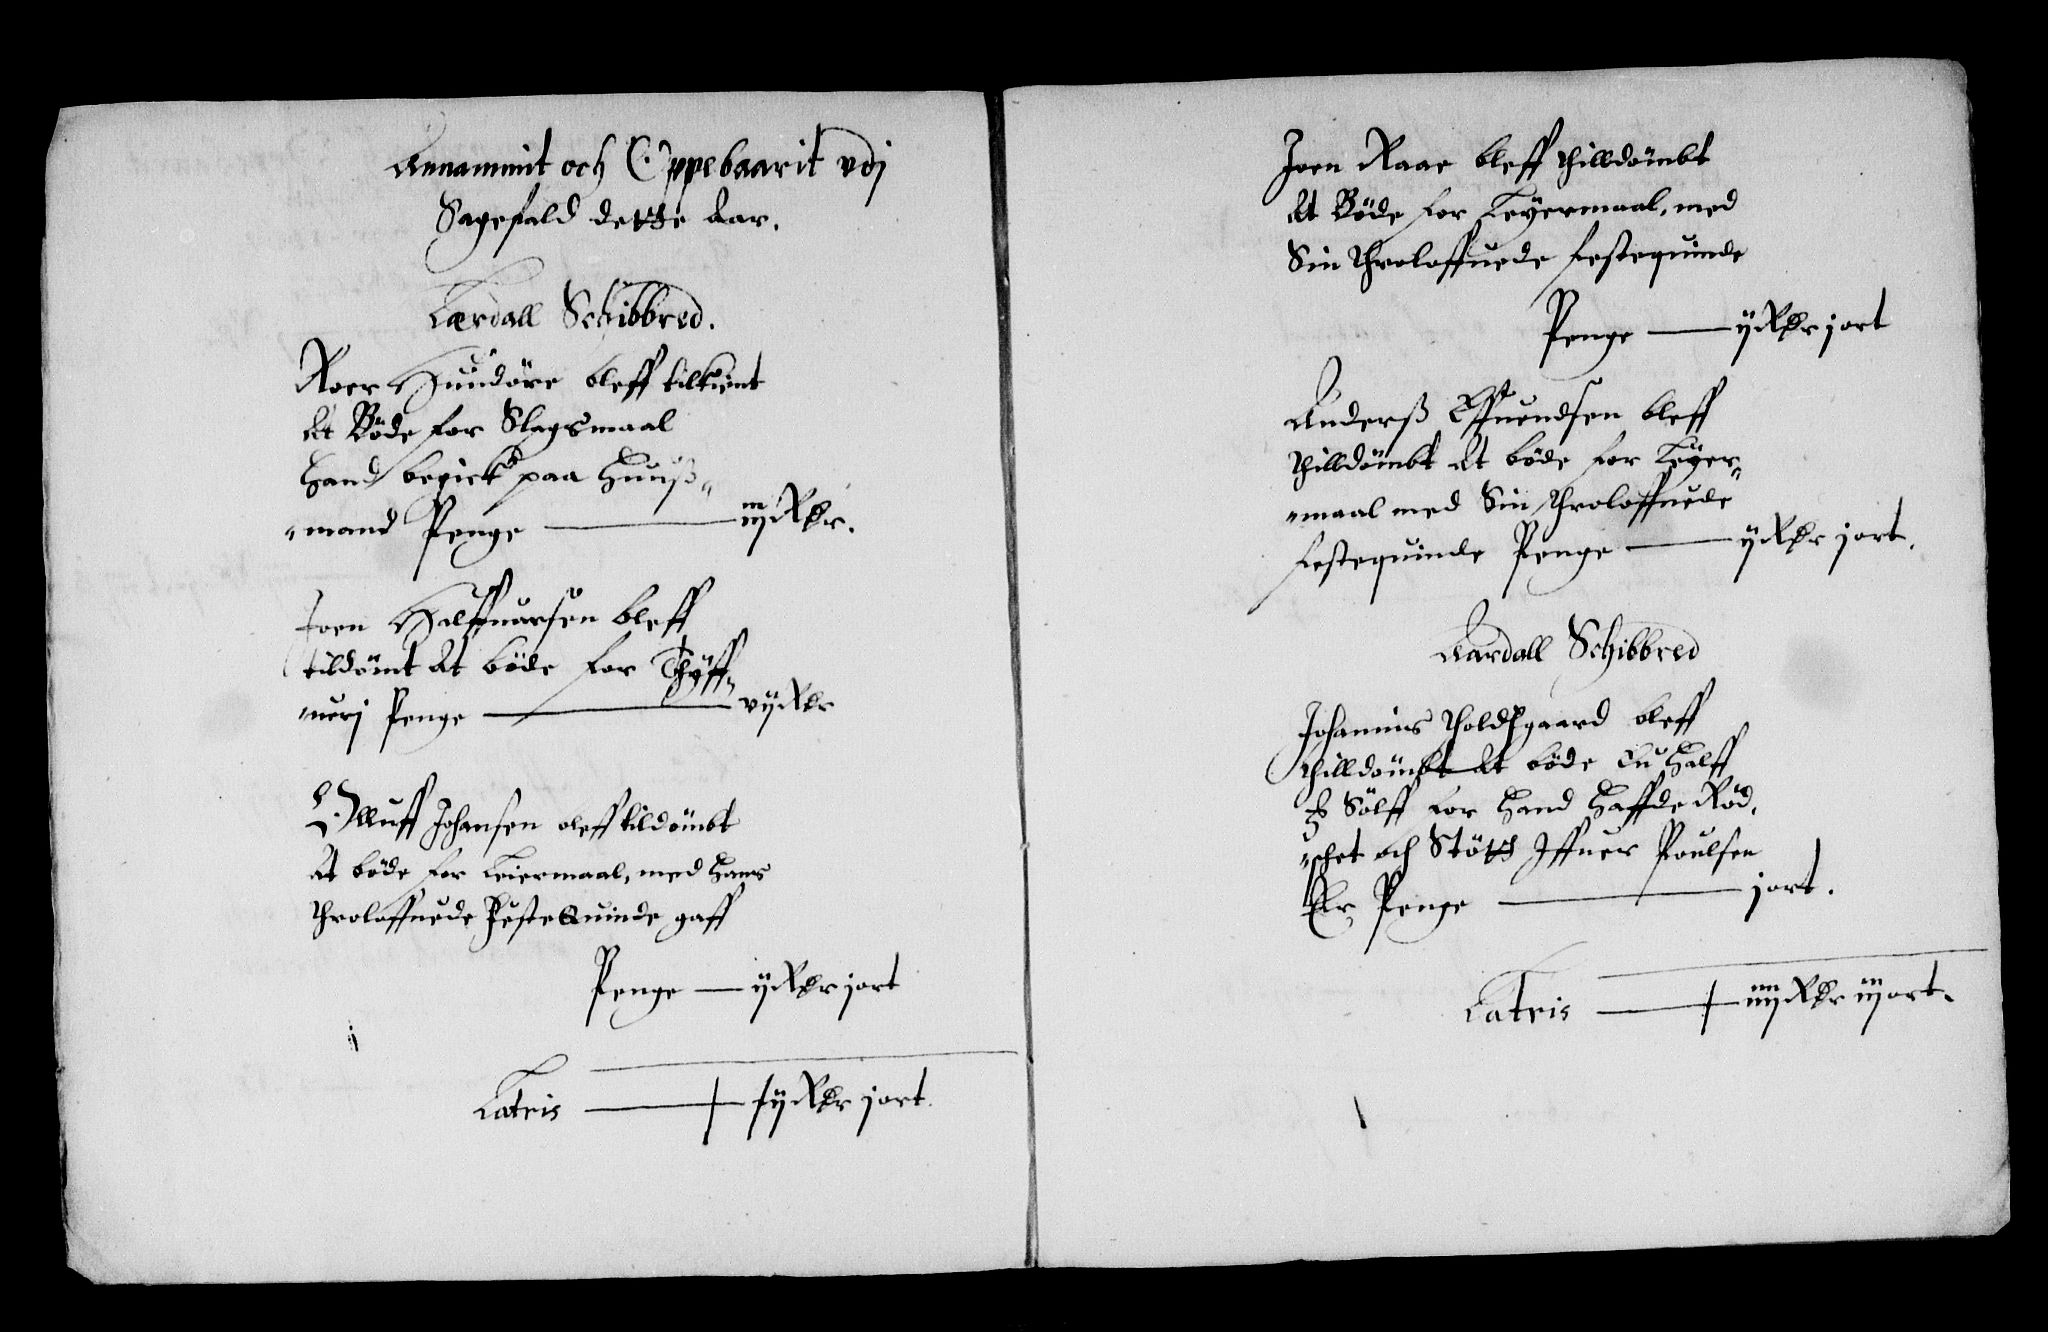 Annammit och Oppebaarit vdj
Sagefald dette Aar.
Lærdall Schibbred.
Roer Hundöre bleff tilkient
At Böde for Slagsmaal
Hand begick paa Huuß„
„mand Penge — iiij Rdr.
Joen Halffuarsen bleff
tildömt At böde for Thyff„
„uerj Penge — vij Rdr
Olluff Johansen bleff tildömbt
At böde for Leiermaal, med Hans
throloffuede FesteQuinde gaff
Penge — ij Rdr j ort
Lateris — xiij Rdr j ort.
Joen Raae bleff thilldömbt
At Böde for Leyermaal, med
Sin throloffuede festequinde
Penge — ij Rdr j ort
Anderß Effuendsen bleff
thilldömbt At böde for Leyer„
„maal med Sin throloffuede
festequinde Penge — ij Rdr j ort.
Aardall Schibbred
Johannis Holdsgaard bleff
thilldömbt At böde Eu Halff
℔ Sölff for Hand Haffde Röd„
„schet och Stött Iffuer Poulsen
Er Penge — j ort.
Lateris — iiij Rdr iij ort.